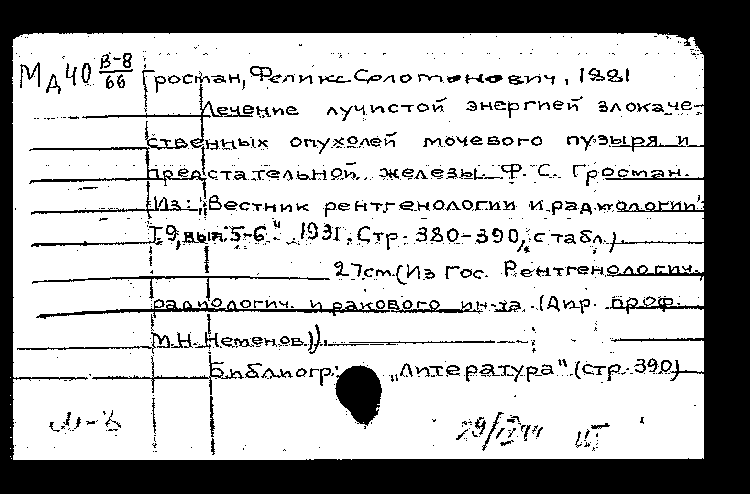 Мд40 В-8/66 Гросман, Феликс Соломонович, 1881
Лечение лучистой энергией злокаче-
ственных опухолей мочевого пузыря и
предстательной железы. Ф. С. Гросман.
(Из: „Вестник рентгенологии и радиологии"
Т.9, вып. 5-6" 1931. Стр. 380-390, с табл.).
27см (Из Гос. Рентгенологич.,
радиологич. и ракового ин-та (Дир. проф.
М.Н. Неменов)).
Библиогр: „Литература" (стр. 390)
29/IV 44